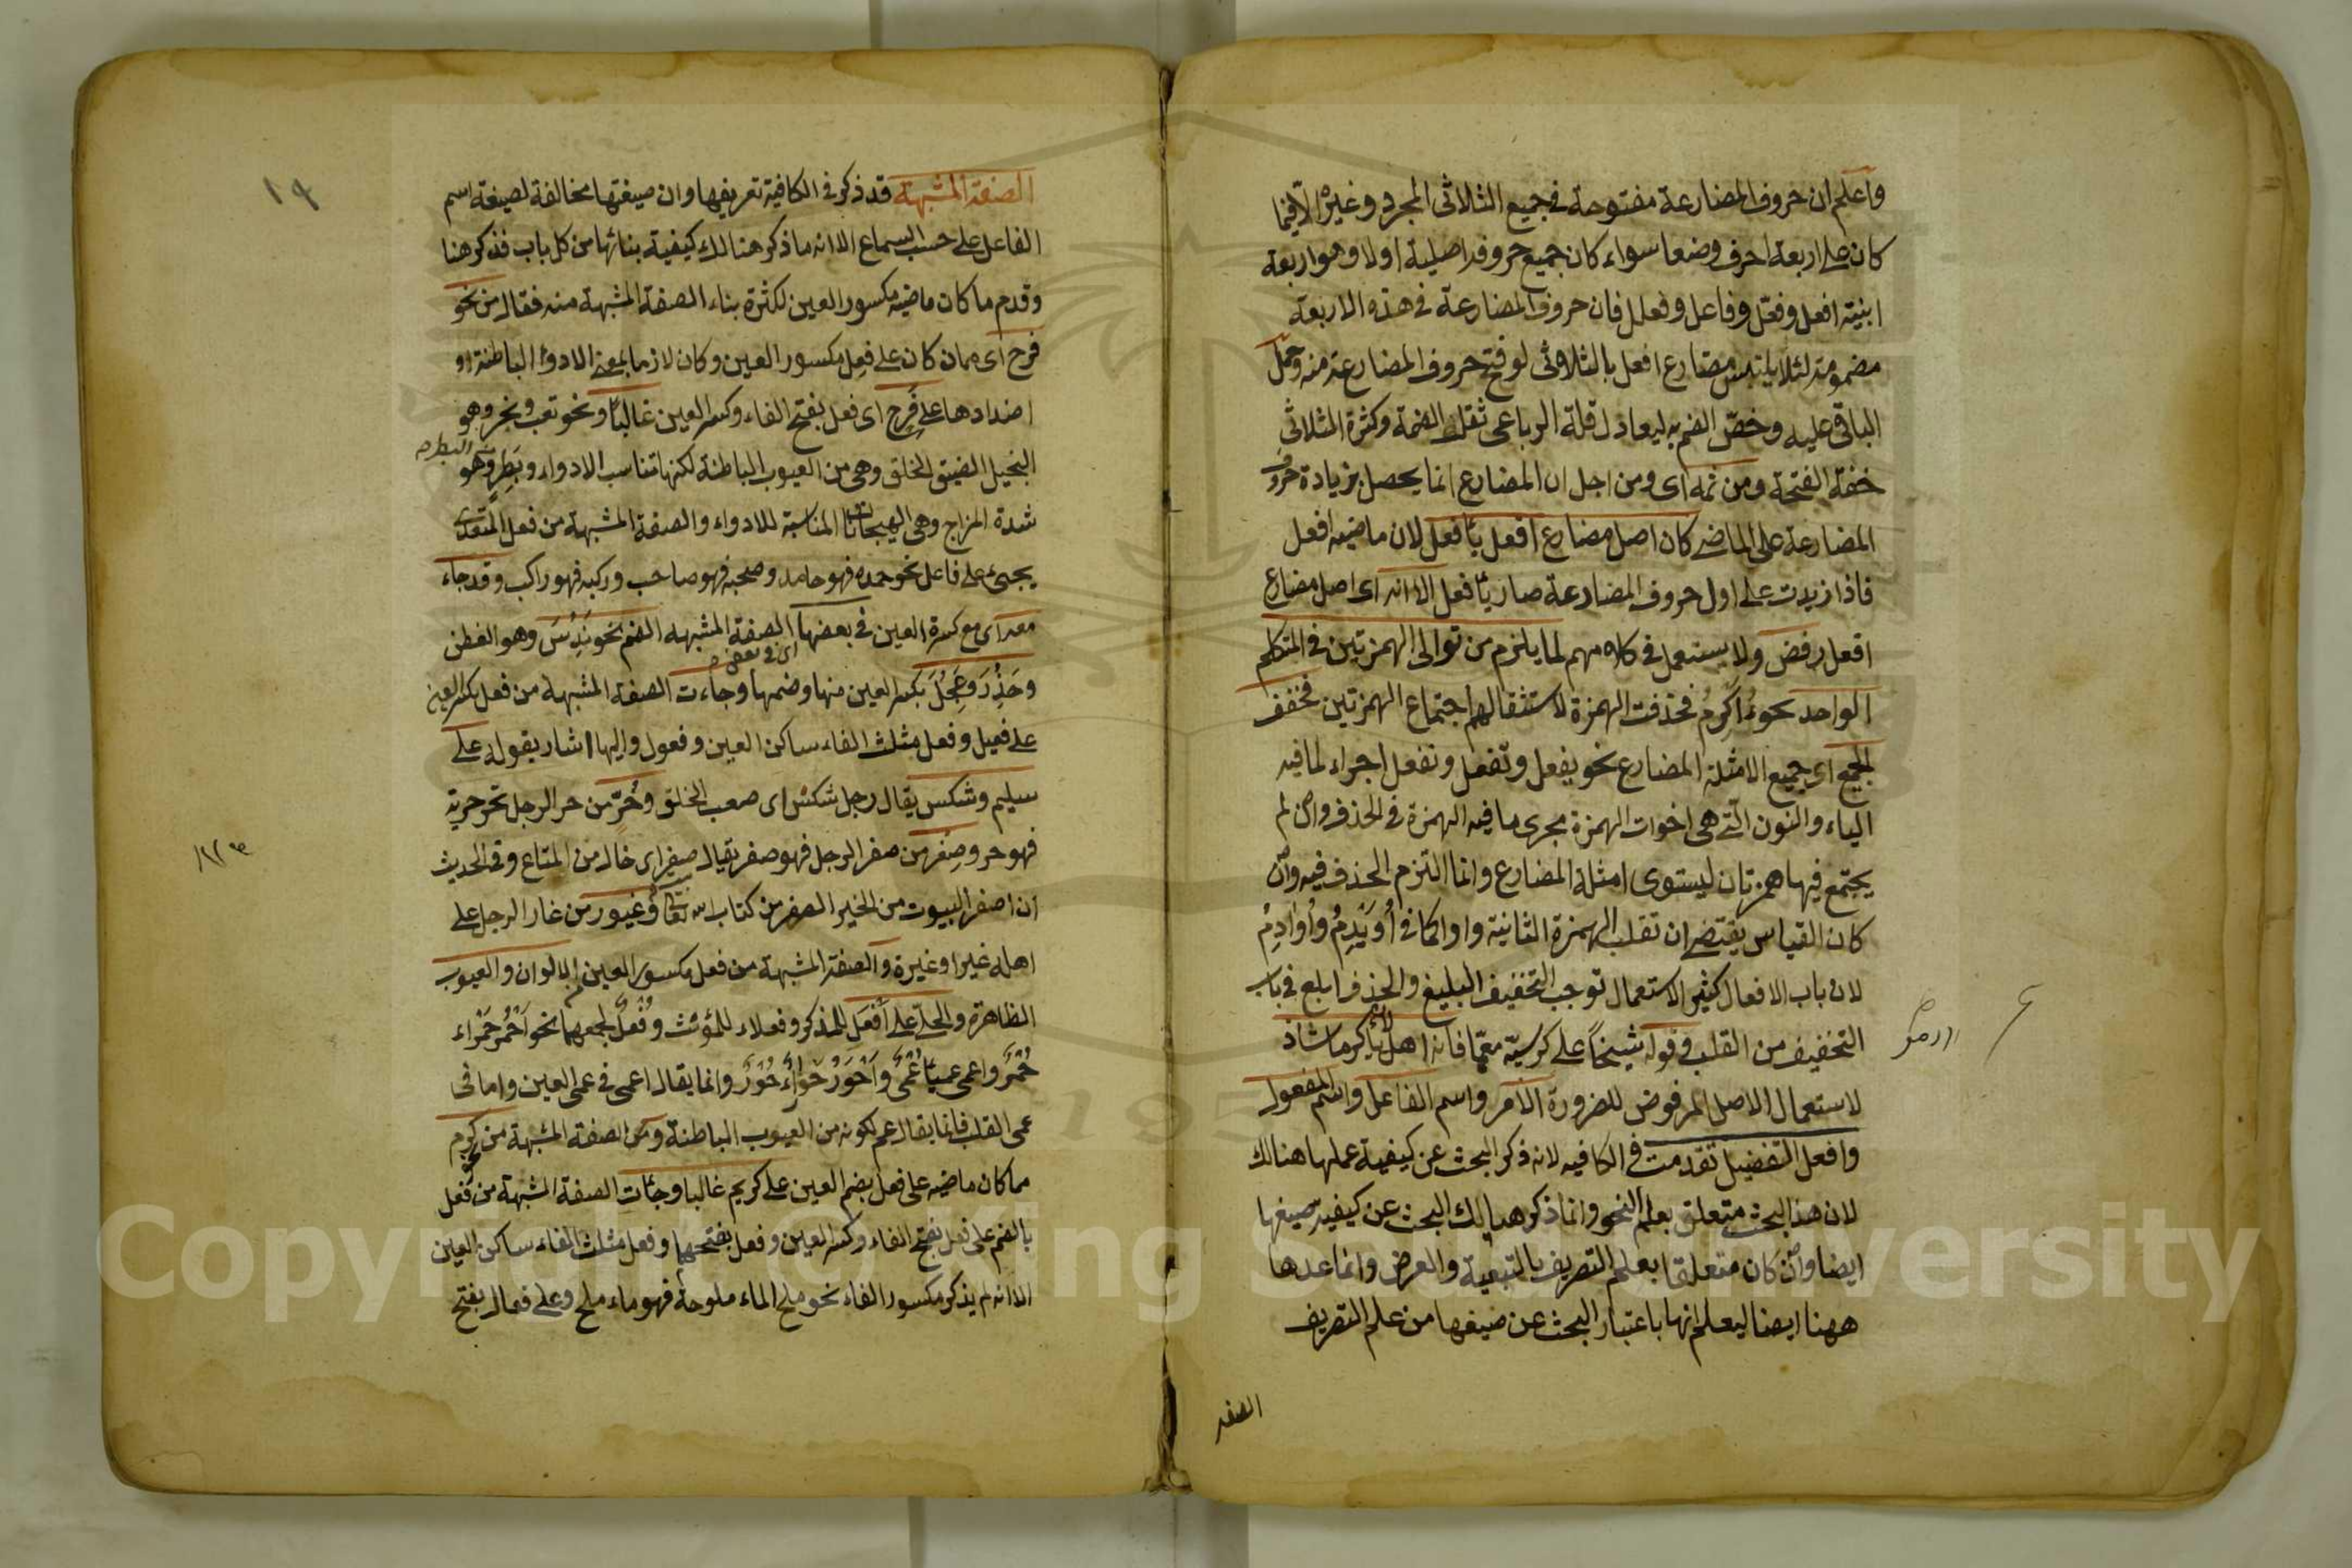 واعلم ان حروف المضارعة مفتوحة في جميع الثلاثى المجرد وغيره الا فيما
كان على اربعة احرف وضعا سواء كان جميع حروفه اصلية او لا وهو اربعة
ابنية افعل وفعّل وفاعل وفعلل فان حروف المضارعة فى هذه الاربعة
مضمومة لئلا يلتبس مضارع افعل بالثلاثى لو فتح حروف المضارعة منه وحمل
الباقى عليه وخصّ الضم به ليعادل قلة الرباعى ثقل الضمة وكثرة الثلاثى
خفة الفتحة ومن ثمه اى ومن اجل ان المضارع انما يحصل بزيادة حروف
المضارعة على الماضى كان اصل مضارع افعل يأفعل لان ماضيه افعل
فاذا زيدت على اول حروف المضارعة صار يأفعل الا انه اى اصل مضارع
افعل رفض ولا يستعمل فى كلامهم لما يلزم من توالى الهمزتين فى المتكلم
الواحد نحو ءُاَكرِمُ فحذفت الهمزة لاستثقالهم اجتماع الهمزتين فخفف
الجميع اى جميع الامثلة المضارع نحو يفعل وتفعل ونفعل اجراء لما فيه
الياء والنون التى هى اخوات الهمزة مجرى ما فيه الهمزة فى الحذف وان لم
يجتمع فيها همزتان ليستوى امثلة المضارع وانما التزم الحذف فيه وان
كان القياس يقتضى ان تقلب الهمزة الثانية واوا كما فى أُوَيْدِمُ وأَوَادِمُ
لان باب الافعال كثير الاستعمال توجب التخفيف البليغ والحذف ابلغ فى باب
التخفيف من القلب وقوله شيخاً على كرسيّه معمّما فانه اهل لأن يأكرما شاذ
لاستعمال الاصل المرفوض للضرورة الامر واسم الفاعل واسم المفعول
وافعل التفضيل تقدمت فى الكافيه لانه ذكر البحث عن كيفية عملها هنالك
لان هذا البحث متعلق بعلم النحو وانما ذكر هنالك البحث عن كيفية صيغها
ايضا وان كان متعلقا بعلم التصريف بالتبعية والعرض وانما عدها
ههنا ايضا ليعلم انها باعتبار البحث عن صيغها من علم التصريف
الصفة
١٩
الصفة المشبهة قد ذكر فى الكافية تعريفها وان صيغتها مخالفة لصيغة اسم
الفاعل على حسب السماع الا انه ما ذكر هنالك كيفية بنائها من كل باب فذكر هنا
وقدم ما كان ماضيه مكسور العين لكثرة بناء الصفة المشبهة منه فقال من نحو
فرح اى مما كان على فعِل مكسور العين وكان لازما بمعنى الادواء الباطنة او
اضدادها على فَرِح اى فعل بفتح الفاء وكسر العين غالبًا ونحو تعب ونجر وهو
البخيل الضيق الخلق وهى من العيوب الباطنة لكنها تناسب الادواء وبَطِر وهو
شدة المزاج وهى الهيجانات المناسبة للادواء والصفة المشبهة من فعل المتعدى
يجىء على فاعل نحو حمده فهو حامد وصحبه فهو صاحب وركبه فهو راكب وقد جاء
معه اى مع كسرة العين فى بعضها الصفة المشبهه الضم نحو نَدُسَ وهو الفطن
وحَذُرَ وعَجُلَ بكسر العين منها وضمها وجاءت الصفة المشبهة من فعل بكسر العين
على فعيل وفعل مثلث الفاء ساكن العين وفعول واليها اشار بقوله على
سليم وشكس يقال رجل شكس اى صعب الخلق وحُرّ من حر الرجل تحر حرية
فهو حر وصِفر من صفر الرجل فهو صفر يقال صفر اى خال من المتاع وفى الحديث
ان اصفر البيوت من الخير الصفر من كتاب الله تعالى وغيور من غار الرجل على
اهله غيرا وغيرة والصفة المشبهة من فعل مكسور العين بالالوان والعيوب
الظاهرة والحلى على أَفعَل للمذكر وفعلاء للمؤنث وفُعلٌ لجمعهما نحو اَحْمُر حَمْراء
حُمْرٌ واعمى عمياءُ عُمْىٌ واَحْوَرُ حَوْراءُ حُوْرٌ وانما يقال اعمى فى عمى العين واما فى
عمى القلب فانما يقال عمٍ لكونه من العيوب الباطنة ومن الصفة المشبهة من نحو كرم
مما كان ماضيه على فعل بضم العين على كريم غالبا وجاءت الصفة المشبهة من فعل
بالضم على فعل بفتح الفاء وكسر العين وفعل بفتحهما وفعل مثلث الفاء ساكن العين
الا انه لم يذكر مكسور الفاء نحو ملح الماء ملوحة فهو ماء ملح وعلى فعال بفتح
Copyright © King Saud University